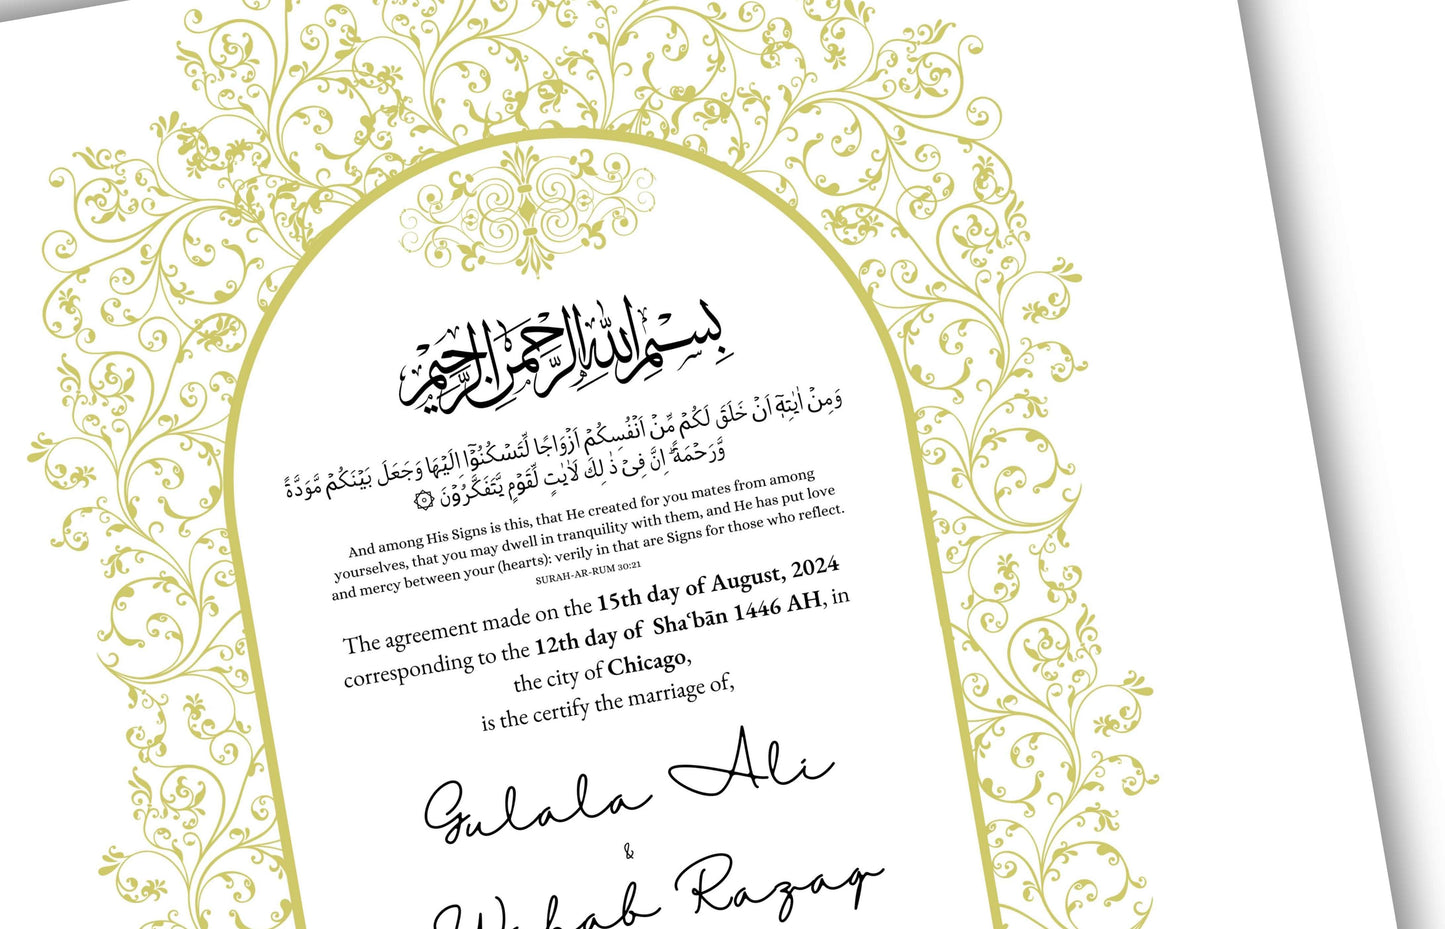 بِسْمِ اللهِ الرَّحْمٰنِ الرَّحِيْمِ
وَمِنْ اٰيٰتِهٖٓ اَنْ خَلَقَ لَكُمْ مِّنْ اَنْفُسِكُمْ اَزْوَاجًا لِّتَسْكُنُوْٓا اِلَيْهَا وَجَعَلَ بَيْنَكُمْ مَّوَدَّةً
وَّرَحْمَةً ؕ اِنَّ فِيْ ذٰ لِكَ لَاٰيٰتٍ لِّقَوْمٍ يَّتَفَكَّرُوْنَ
And among His Signs is this, that He created for you mates from among
yourselves, that you may dwell in tranquility with them, and He has put love
and mercy between your (hearts): verily in that are Signs for those who reflect.
SURAH-AR-RUM 30:21
The agreement made on the 15th day of August, 2024
corresponding to the 12th day of Shaʿbān 1446 AH, in
the city of Chicago,
is the certify the marriage of,
Gulala Ali
&
Wahab Razaq